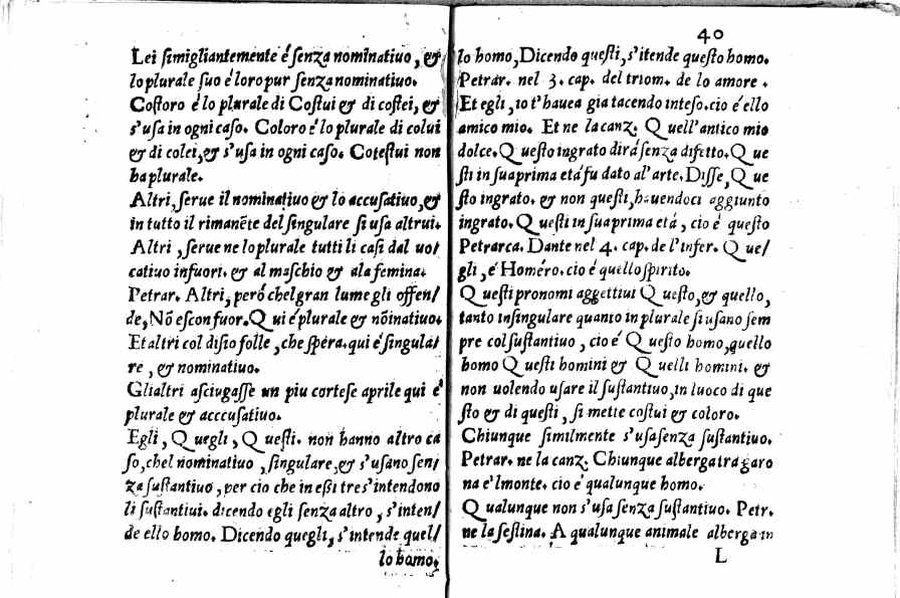 Lei simigliantemente é senza nominatiuo, &
lo plurale suo é loro pur senza nominatiuo.
Costoro é lo plurale di Costui & di costei, &
s'usa in ogni caso. Coloro é lo plurale di colui
& di colei, & s'usa in ogni caso. Cotestui non
ha plurale.
Altri, serue il nominatiuo & lo accusatiuo, &
in tutto il rimanēte del singulare si usa altrui.
Altri, serue ne lo plurale tutti li casi dal uo/
catiuo infuori. & al maschio & a la femina.
Petrar. Altri, peró chel gran lume gli offen/
de, Nō escon fuor. Qui é plurale & nōinatiuo.
Et altri col disio folle, che spera. qui é singula/
re, & nominatiuo.
Gli altri asciugasse un piu cortese aprile qui é
plurale & acccusatiuo.
Egli, Quegli, Questi. non hanno altro ca
so, chel nominatiuo, singulare, & s'usano sen/
za sustantiuo, per cio che in essi tre s'intendono
li sustantiui. dicendo egli senza altro, s'inten/
de ello homo. Dicendo quegli, s'intende quel/
lo homo,
40
lo homo, Dicendo questi, s'itende questo homo.
Petrar. nel 3. cap. del triom. de lo amore.
Et egli, io t'hauea gia tacendo inteso. cio é ello
amico mio. Et ne la canz. Quell'antico mio
dolce. Questo ingrato dirá senza difetto. Que
sti in sua prima etá fu dato al'arte. Disse, Que
sto ingrato. & non questi, hauendoci aggiunto
ingrato. Questi in sua prima etá, cio é questo
Petrarca. Dante nel 4. cap. de l'infer. Que/
gli, é Homéro. cio é quello spirito.
Questi pronomi aggettiui Questo, & quello,
tanto in singulare quanto in plurale si usano sem
pre col sustantiuo, cio é Questo homo, quello
homo Questi homini & Quelli homini. &
non uolendo usare il sustantiuo, in luoco di que
sto & di questi, si mette costui & coloro.
Chiunque similmente s'usa senza sustantiuo.
Petrar. ne la canz. Chiunque alberga tra garo
na e'l monte. cio é qualunque homo.
Qualunque non s'usa senza sustantiuo. Petr.
ne la sestina. A qualunque animale alberga in
L